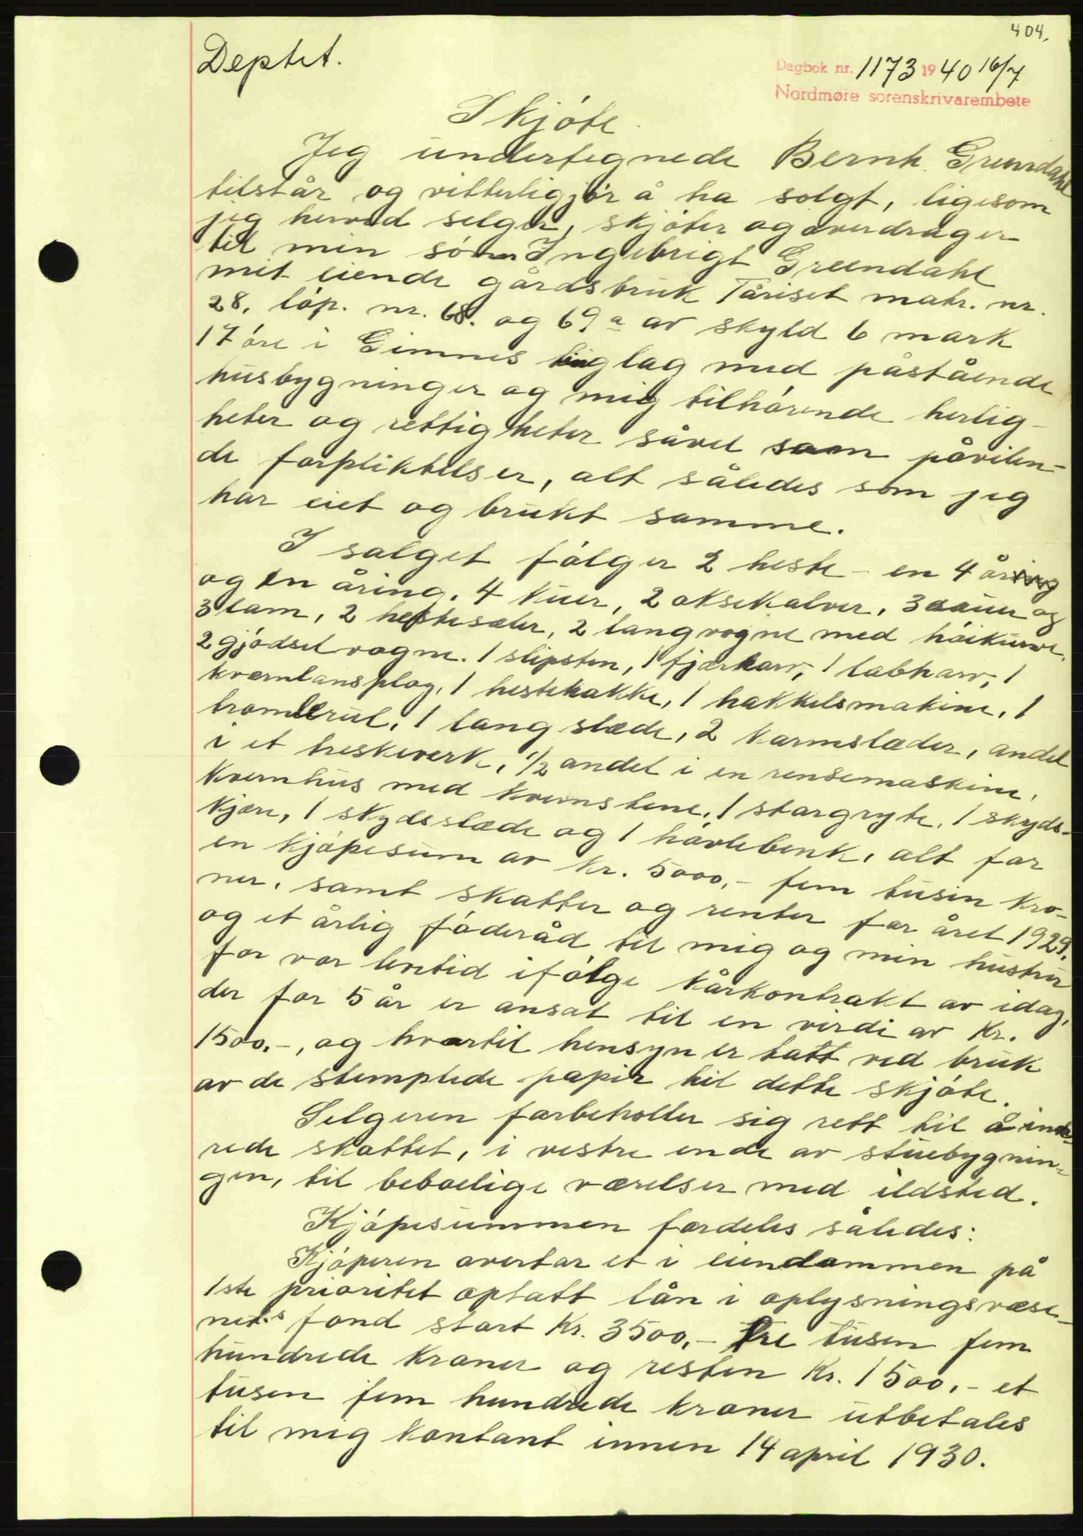 404.
Deptet.
Dagbok nr. 1173 1940 16/7
Nordmøre sorenskrivarembete
Skjøte.
Jeg undertegnede Bernh. Grendahl
tilstår og vitterligjør å ha solgt, ligesom
jeg herved selger, skjøter og överdrager
til min sønn Ingebrigt Grendahl
mit eiende gårdsbruk Tåriset matr. nr.
28. löp. nr. 68. og 69a av skyld 6 mark
17 øre i Gimnes tinglag med påstående
husbygninger og mig tilhörende herlig-
heter og rettigheter såvel som påvilen-
de forpliktelser, alt således som jeg
har eiet og brukt samme.
I salget følger 2 heste - en 4 åring
og en åring. 4 kuer, 2 oksekalver, 3 sauer og
3 lam, 2 hestesæler, 2 langvogne med høikurve.
2 gjødselvogne. 1 slipsten, 1 fjærharv, 1 labharv, 1
kvernlansplog, 1 hestehakke, 1 hakkelsmakine, 1
tromlerul, 1 langslæde, 2 karmslæder, andel
i et treskeverk, 1/2 andel i en rensemaskine,
kvernhus med kvernstene, 1 storgryte, 1 skyds-
kjære, 1 skydsslæde og 1 høvlebenk, alt for
en kjøpesum av kr. 5000,- fem tusin kro-
ner, samt skatter og renter for året 1929,
og et årlig föderåd til mig og min hustru
for vor levetid ifølge kårkontrakt av idag,
der for 5 år er ansat til en virdi av kr.
1500.-, og hvortil hensyn er tatt ved bruk
av de stemplede papir til dette skjøte.
Selgeren forbeholler sig rett til å inde
rede skottet, i vestre ende av stuebygnin-
gen, til beboelige værelser med ildsted.
Kjøpesummen fordeles således:
Kjøperen overtar et i eiendommen på
1ste prioritet optatt lån i oplysningsvæse-
nets fond stort kr. 3500,- tre tusen fem
hundrede kroner og resten kr. 1500.- et
tusen fem hundrede kroner utbetales
til mig kontant innen 14 april 1930.